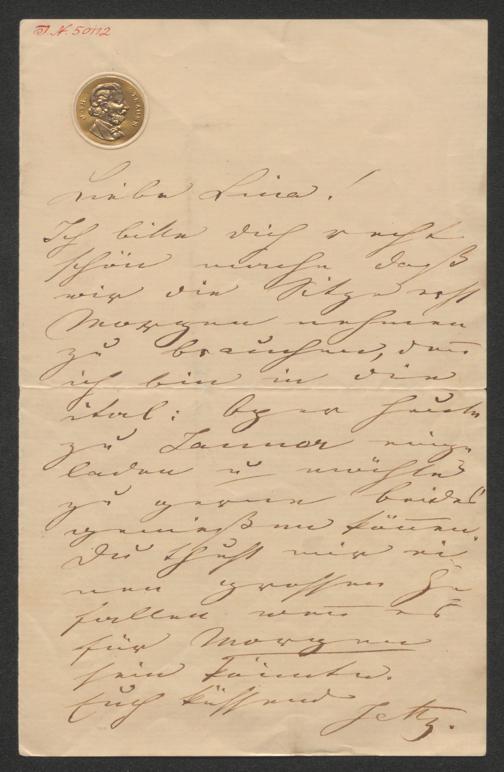 J. N. 50112
Liebe Lina!
Ich bitte dich recht
schön mache daß
wir die Sitze erst
Morgen nehmen
zu brauchen, den̅
ich bin in die
ital: Oper heute
zu einge
laden u möchte
zu gerne beides
genießen kön̅en.
Du thust mir ei
nen grossen Ge
fallen wen̅ es
für Morgen
sein könnte.
Euch küssend
Jetty.